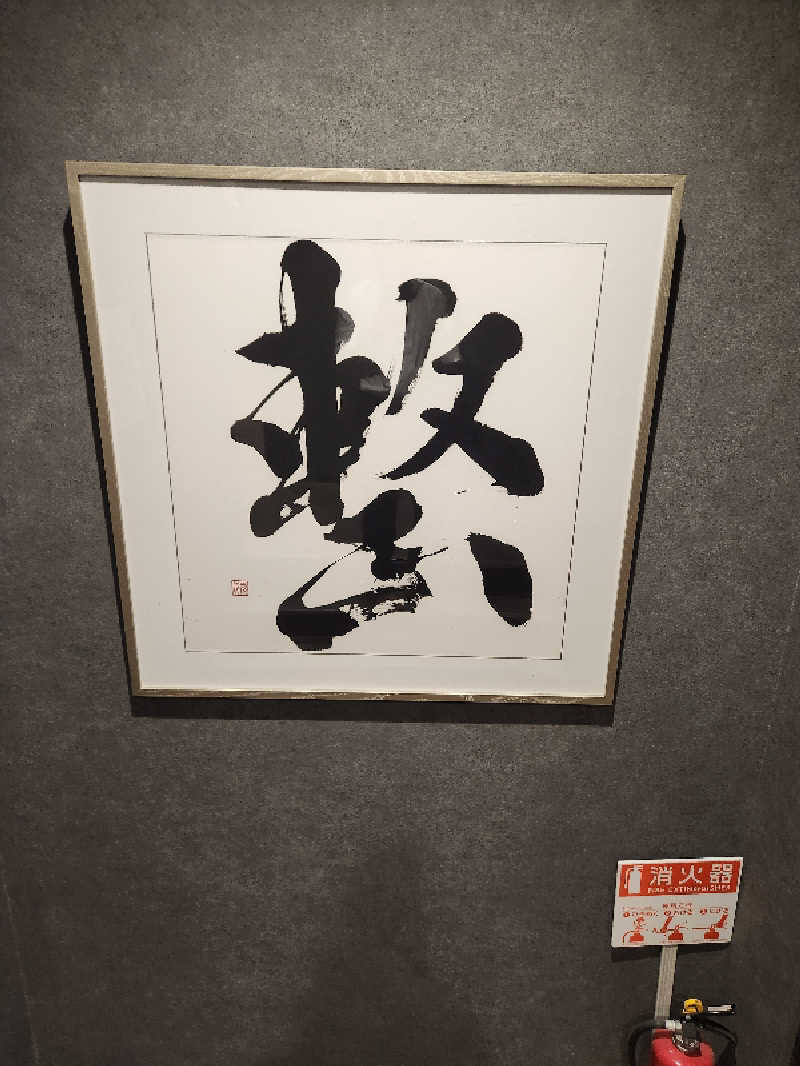 繋
消火器
FIRE EXTINGUISHER